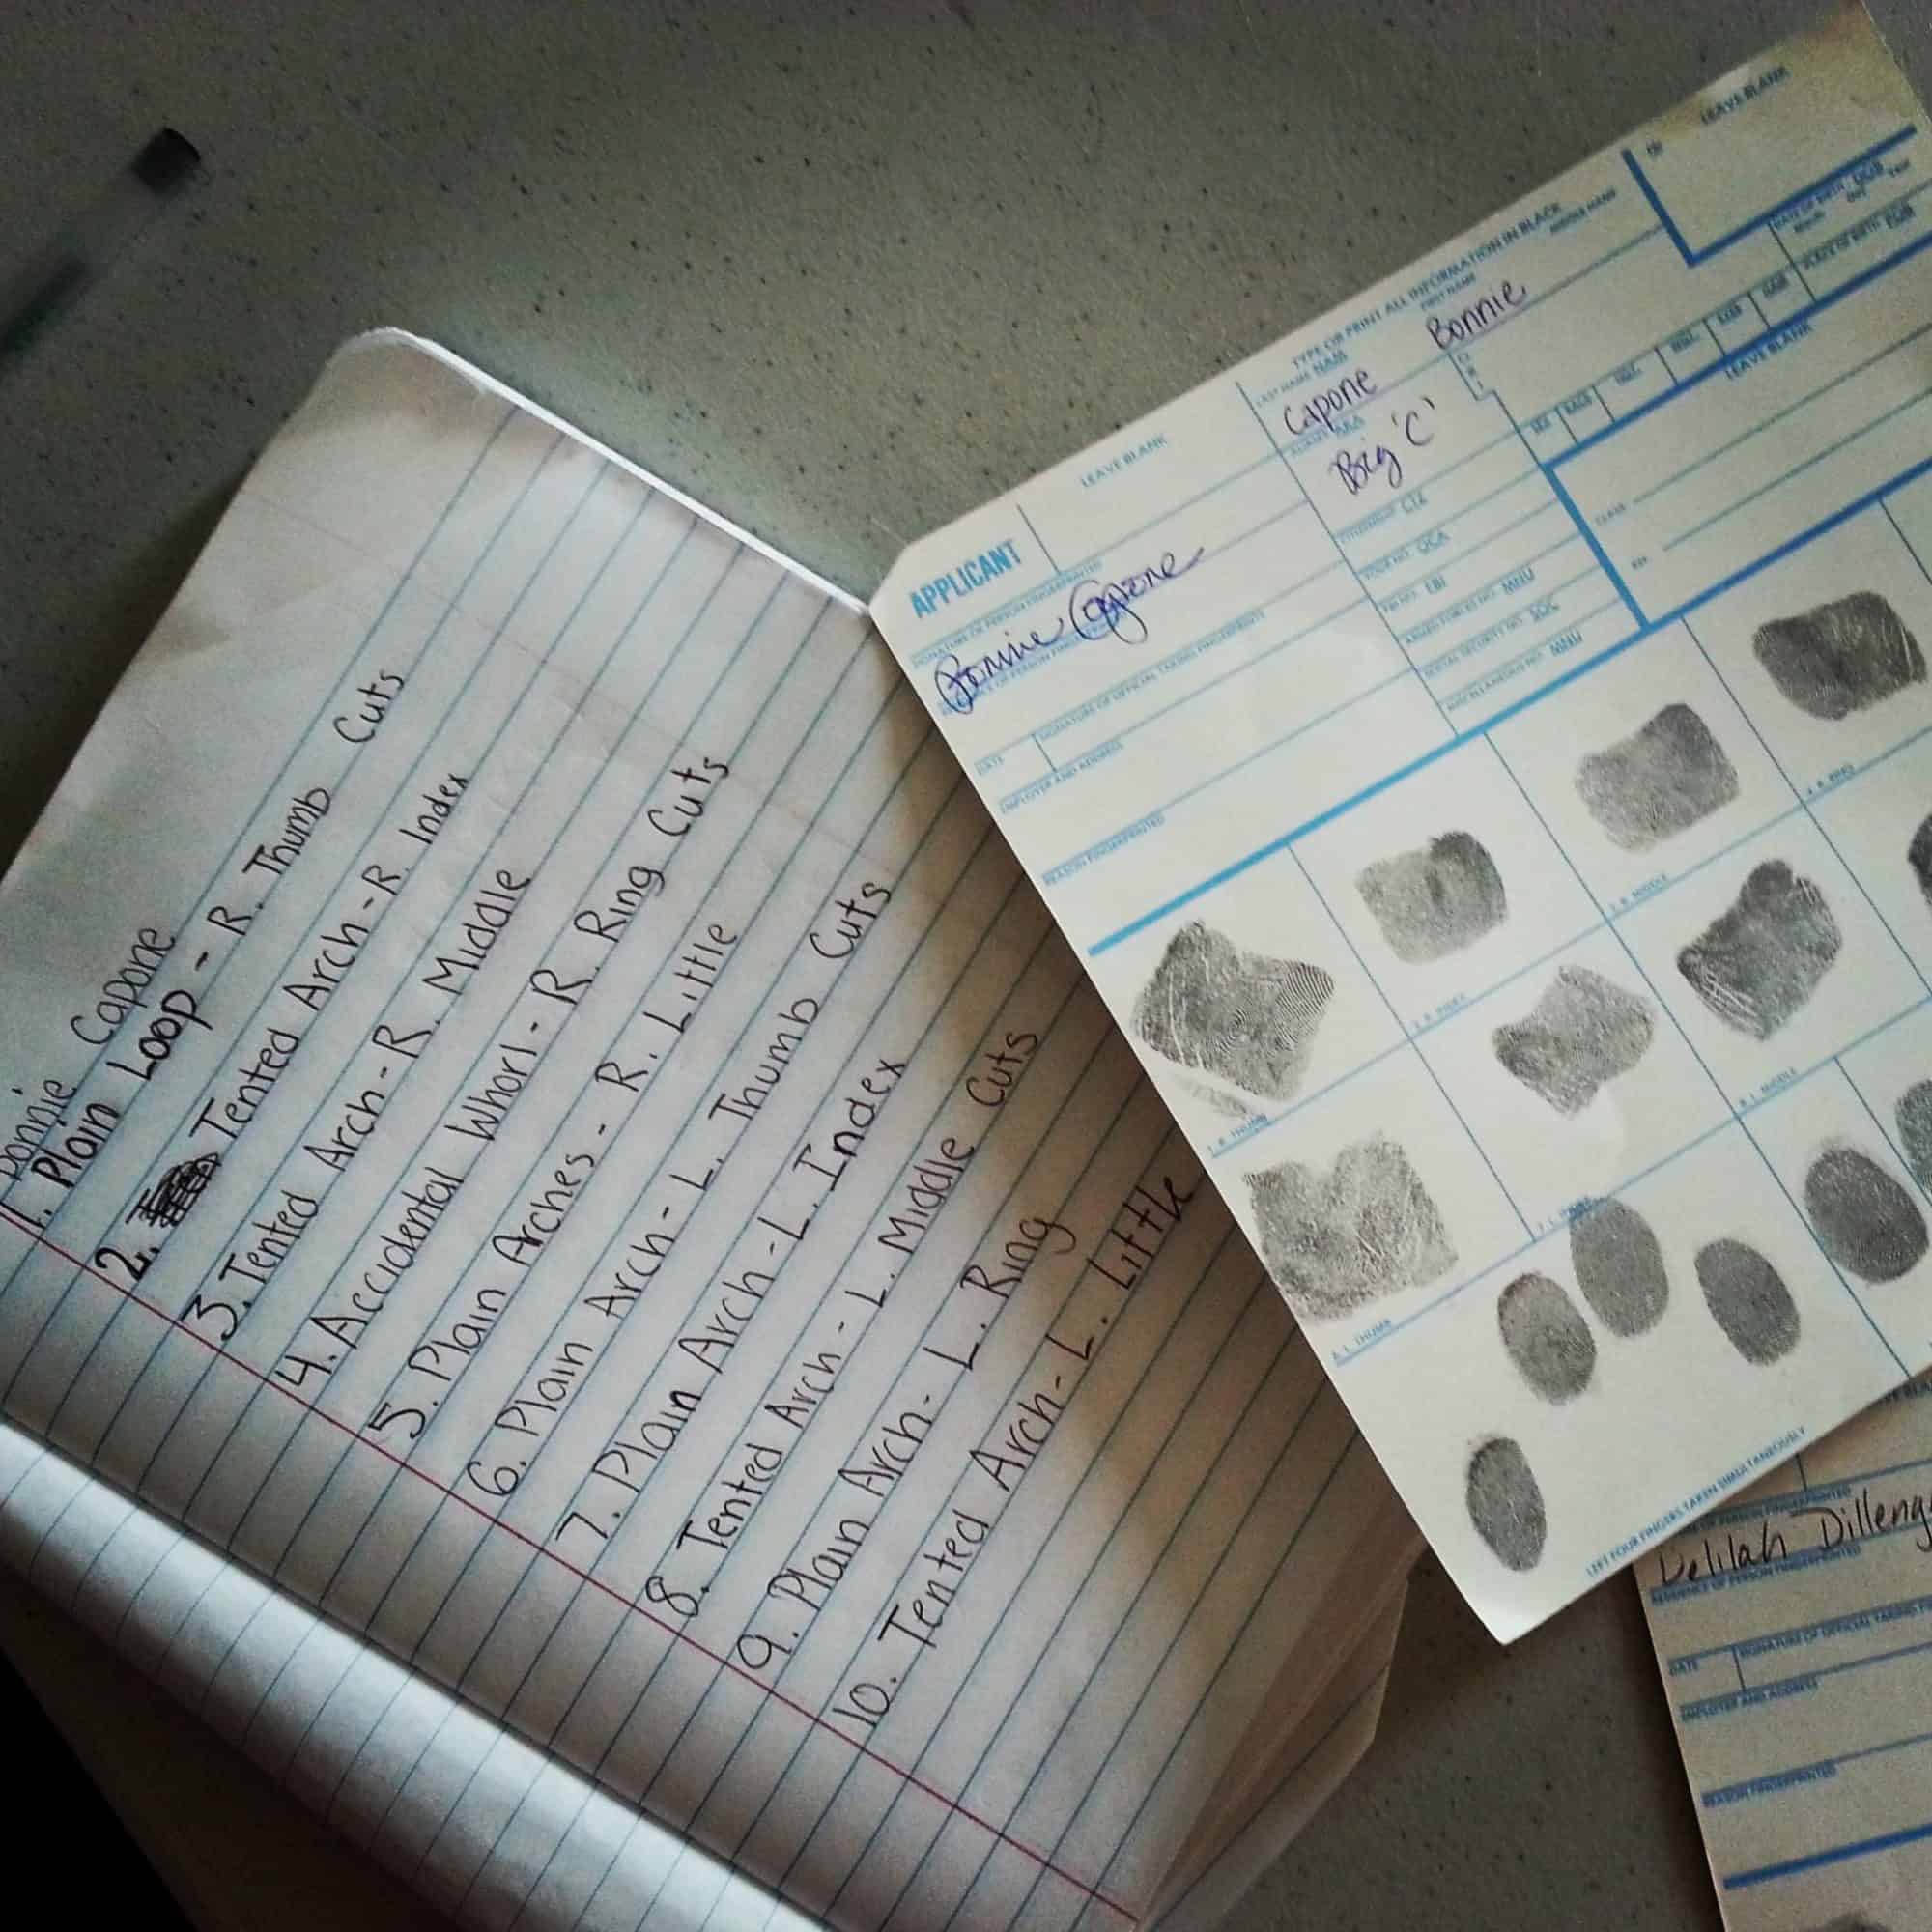 Bonnie Capone
1. Plain Loop - R. Thumb Cuts
2. Tented Arch - R. Index
3. Tented Arch - R. Middle
4. Accidental Whorl - R. Ring Cuts
5. Plain Arches - R. Little
6. Plain Arch - L. Thumb Cuts
7. Plain Arch - L. Index
8. Tented Arch - L. Middle Cuts
9. Plain Arch - L. Ring
10. Tented Arch - L. Little
APPLICANT
LEAVE BLANK
TYPE OR PRINT ALL INFORMATION IN BLACK
LAST NAME NAM
FIRST NAME
MIDDLE NAME
FBI
LEAVE BLANK
Capone
Bonnie
SIGNATURE OF PERSON FINGERPRINTED
Bonnie Capone
ALIASES AKA
Big 'C'
O
R
I
DATE OF BIRTH DOB
Month Day Year
RESIDENCE OF PERSON FINGERPRINTED
CITIZENSHIP CTZ
SEX
RACE
HGT.
WGT.
EYES
HAIR
PLACE OF BIRTH POB
DATE
SIGNATURE OF OFFICIAL TAKING FINGERPRINTS
YOUR NO. OCA
LEAVE BLANK
EMPLOYER AND ADDRESS
FBI NO. FBI
ARMED FORCES NO. MNU
CLASS
SOCIAL SECURITY NO. SOC
REF.
REASON FINGERPRINTED
MISCELLANEOUS NO. MNU
1. R. THUMB
2. R. INDEX
3. R. MIDDLE
4. R. RING
6. L. THUMB
7. L. INDEX
8. L. MIDDLE
LEFT FOUR FINGERS TAKEN SIMULTANEOUSLY
SIGNATURE OF PERSON FINGERPRINTED
Delilah
RESIDENCE OF PERSON FINGERPRINTED
DATE
SIGNATURE OF OFFICIAL TAKING
EMPLOYER AND ADDRESS
REASON FINGERPRINTED